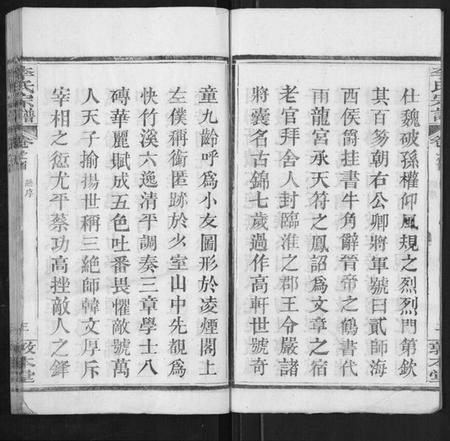 杜魏破孫權仰風規之烈烈門第欽
其百笏朝右公卿將軍號曰貳師海
西侯爵挂書牛角辭晉帝之鶴書代
雨龍宮承天符之鳳詔為文章之宿
老官拜舍人封臨淮之郡王令嚴諸
將囊名古錦七歲過作高軒世號奇
李氏宗譜
卷首
童九齡呼為小友圖形於凌煙閣上
左僕稱衡匿跡於少室山中先覩為
快竹溪六逸清平調奏三章學士八
磚華麗賦成五色吐番畏懼敵號萬
人天子揄揚世稱三絕師韓文厚斥
宰相之愆尤平蔡功高挫敵人之鋒
李氏宗譜
卷首
三
敦本堂